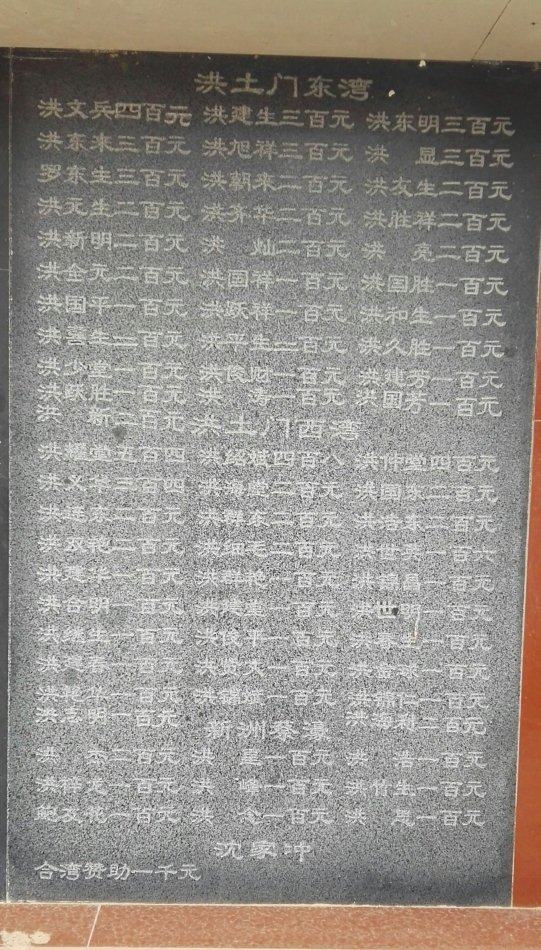 洪土门东湾
洪文兵四百元 洪建生三百元 洪东明三百元
洪东来三百元 洪旭祥三百元 洪 显三百元
罗东生三百元 洪朝来二百元 洪友生二百元
洪元生二百元 洪芥华二百元 洪胜祥二百元
洪新明二百元 洪 灿二百元 洪 亮二百元
洪金元二百元 洪国祥一百元 洪国胜一百元
洪国平一百元 洪跃祥一百元 洪和生一百元
洪善生二百元 洪平生二百元 洪久胜一百元
洪少堂一百元 洪 一百元 洪建芳一百元
洪跃胜一百元 洪 涛一百元 洪国芳一百元
洪 新二百元
洪土门西湾
洪耀堂五百四 洪绍斌四百八 洪仲堂四百元
洪义 三百四 洪海堂二百元 洪国东二百元
洪 东二百元 洪群东二百元 洪 东二百元
洪双艳二百元 洪细毛二百元 洪世 一百六
洪建华一百元 洪群艳一百元 洪 昌一百元
洪合明一百元 洪 一百元 洪世明一百元
洪继生一百元 洪俊平一百元 洪 一百元
洪建春一百元 洪 一百元 洪 一百元
洪 一百元 洪 一百元 洪 仁一百元
洪志明一百元 洪海利二百元
新洲蔡
洪 杰二百元 洪 星一百元 洪 浩一百元
洪祥龙一百元 洪 一百元 洪竹生一百元
鲍友 一百元 洪 念一百元 洪 恩一百元
沈家冲
合湾赞助一千元